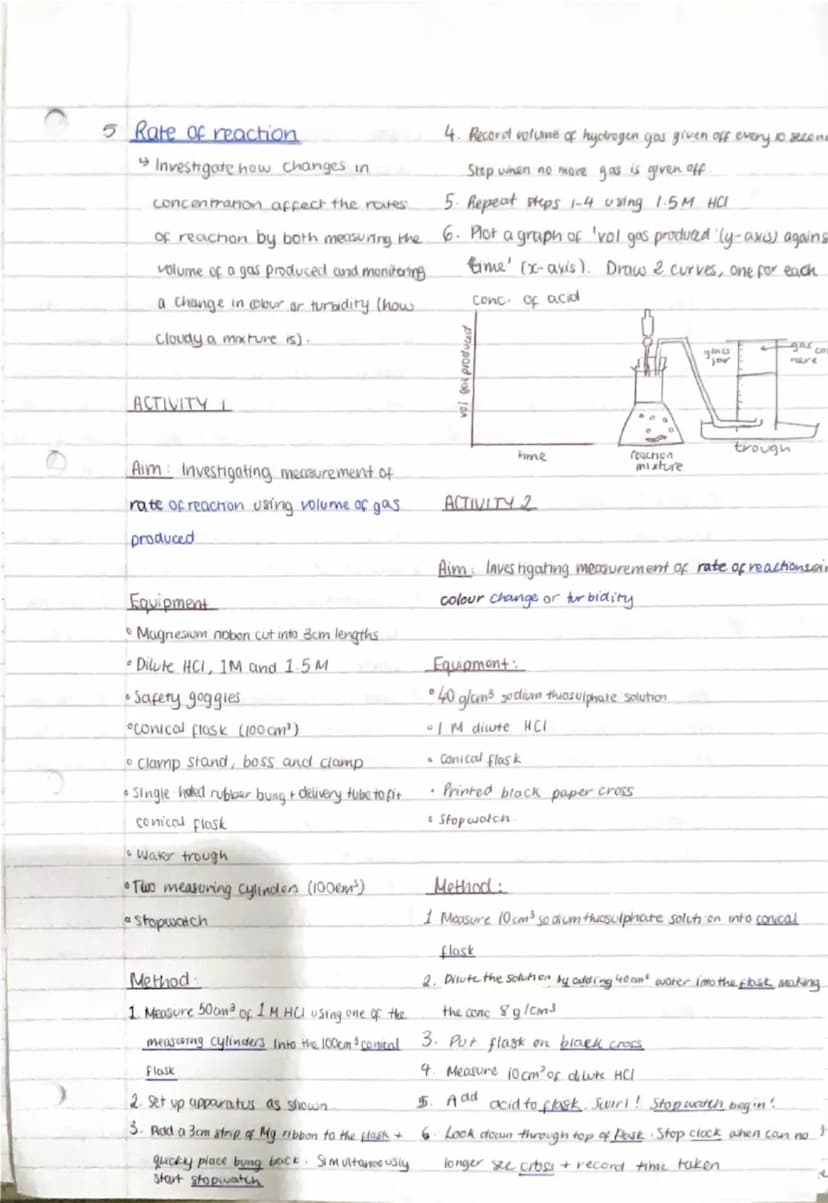 5 Rate of reaction
↳ Investigate how changes in
concentration affect the rates
of reaction by both measuring the
volume of a gas produced and monitering
a change in colour or turbidity (how
cloudy a mixture is).
ACTIVITY 1
Aim: Investigating measurement of
rate of reaction using volume of gas
produced
Equipment
• Magnesium ribbon cut into 3cm lengths
• Dilute HCl, 1M and 1.5M
• Safety goggles
• Conical flask (100cm³)
• Clamp stand, boss and clamp
• Single-holed rubber bung + delivery tube to fit
conical flask
• Water trough
• Two measuring cylinders (100cm³)
• Stopwatch
Method:
1. Measure 50cm³ of 1M HCl using one of the
measuring cylinders into the 100cm³ conical
flask
2. Set up apparatus as shown
3. Add a 3cm strip of Mg ribbon to the flask +
quickly place bung back. Simultaneously
start stopwatch
4. Record volume of hydrogen gas given off every 10 secon
Stop when no more gas is given off
5. Repeat steps 1-4 using 1.5M HCl
6. Plot a graph of 'vol gas produced' (y-axis) agains
time' (x-axis). Draw 2 curves, one for each
conc. of acid
vol gas produced
time
reaction
mixture
glass
jar
gas co
here
trough
ACTIVITY 2
Aim: Investigating measurement of rate of reaction
colour change or turbidity
Equipment:
• 40 g/cm³ sodium thiosulphate solution
• 1 M dilute HCl
• Conical flask
• Printed black paper cross
• Stopwatch
Method:
1 Measure 10cm³ sodium thiosulphate solution into conical
flask
2. Dilute the solution by adding 40cm³ water into the flask making
the conc 8g/cm³
3. Put flask on black cross
4. Measure 10cm³ of dilute HCl
5. Add acid to flask. Swirl! Stopwatch begin!
6. Look down through top of flask. Stop clock when can no
longer see cross + record time taken